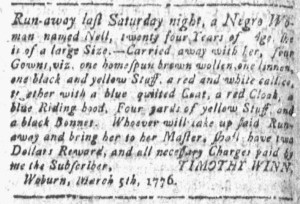 Run-away last Saturday night, a Negro Wo-
man named Nell, twenty four Years of Age, she
is of a large Size.—Carried away with her, four
Gowns, viz. one homespun brown wollen, one linnen,
one black and yellow Stuff, a red and white callico,
together with a blue quilted Coat, a red Cloak, a
blue Riding hood, Four yards of yellow Stuff, and
a black Bonnet. Whoever will take up said Run-
away and bring her to her Master, shall have two
Dollars Reward, and all necessary Charges paid by
me the Subscriber, TIMOTHY WINN.
Woburn, March 5th, 1776.